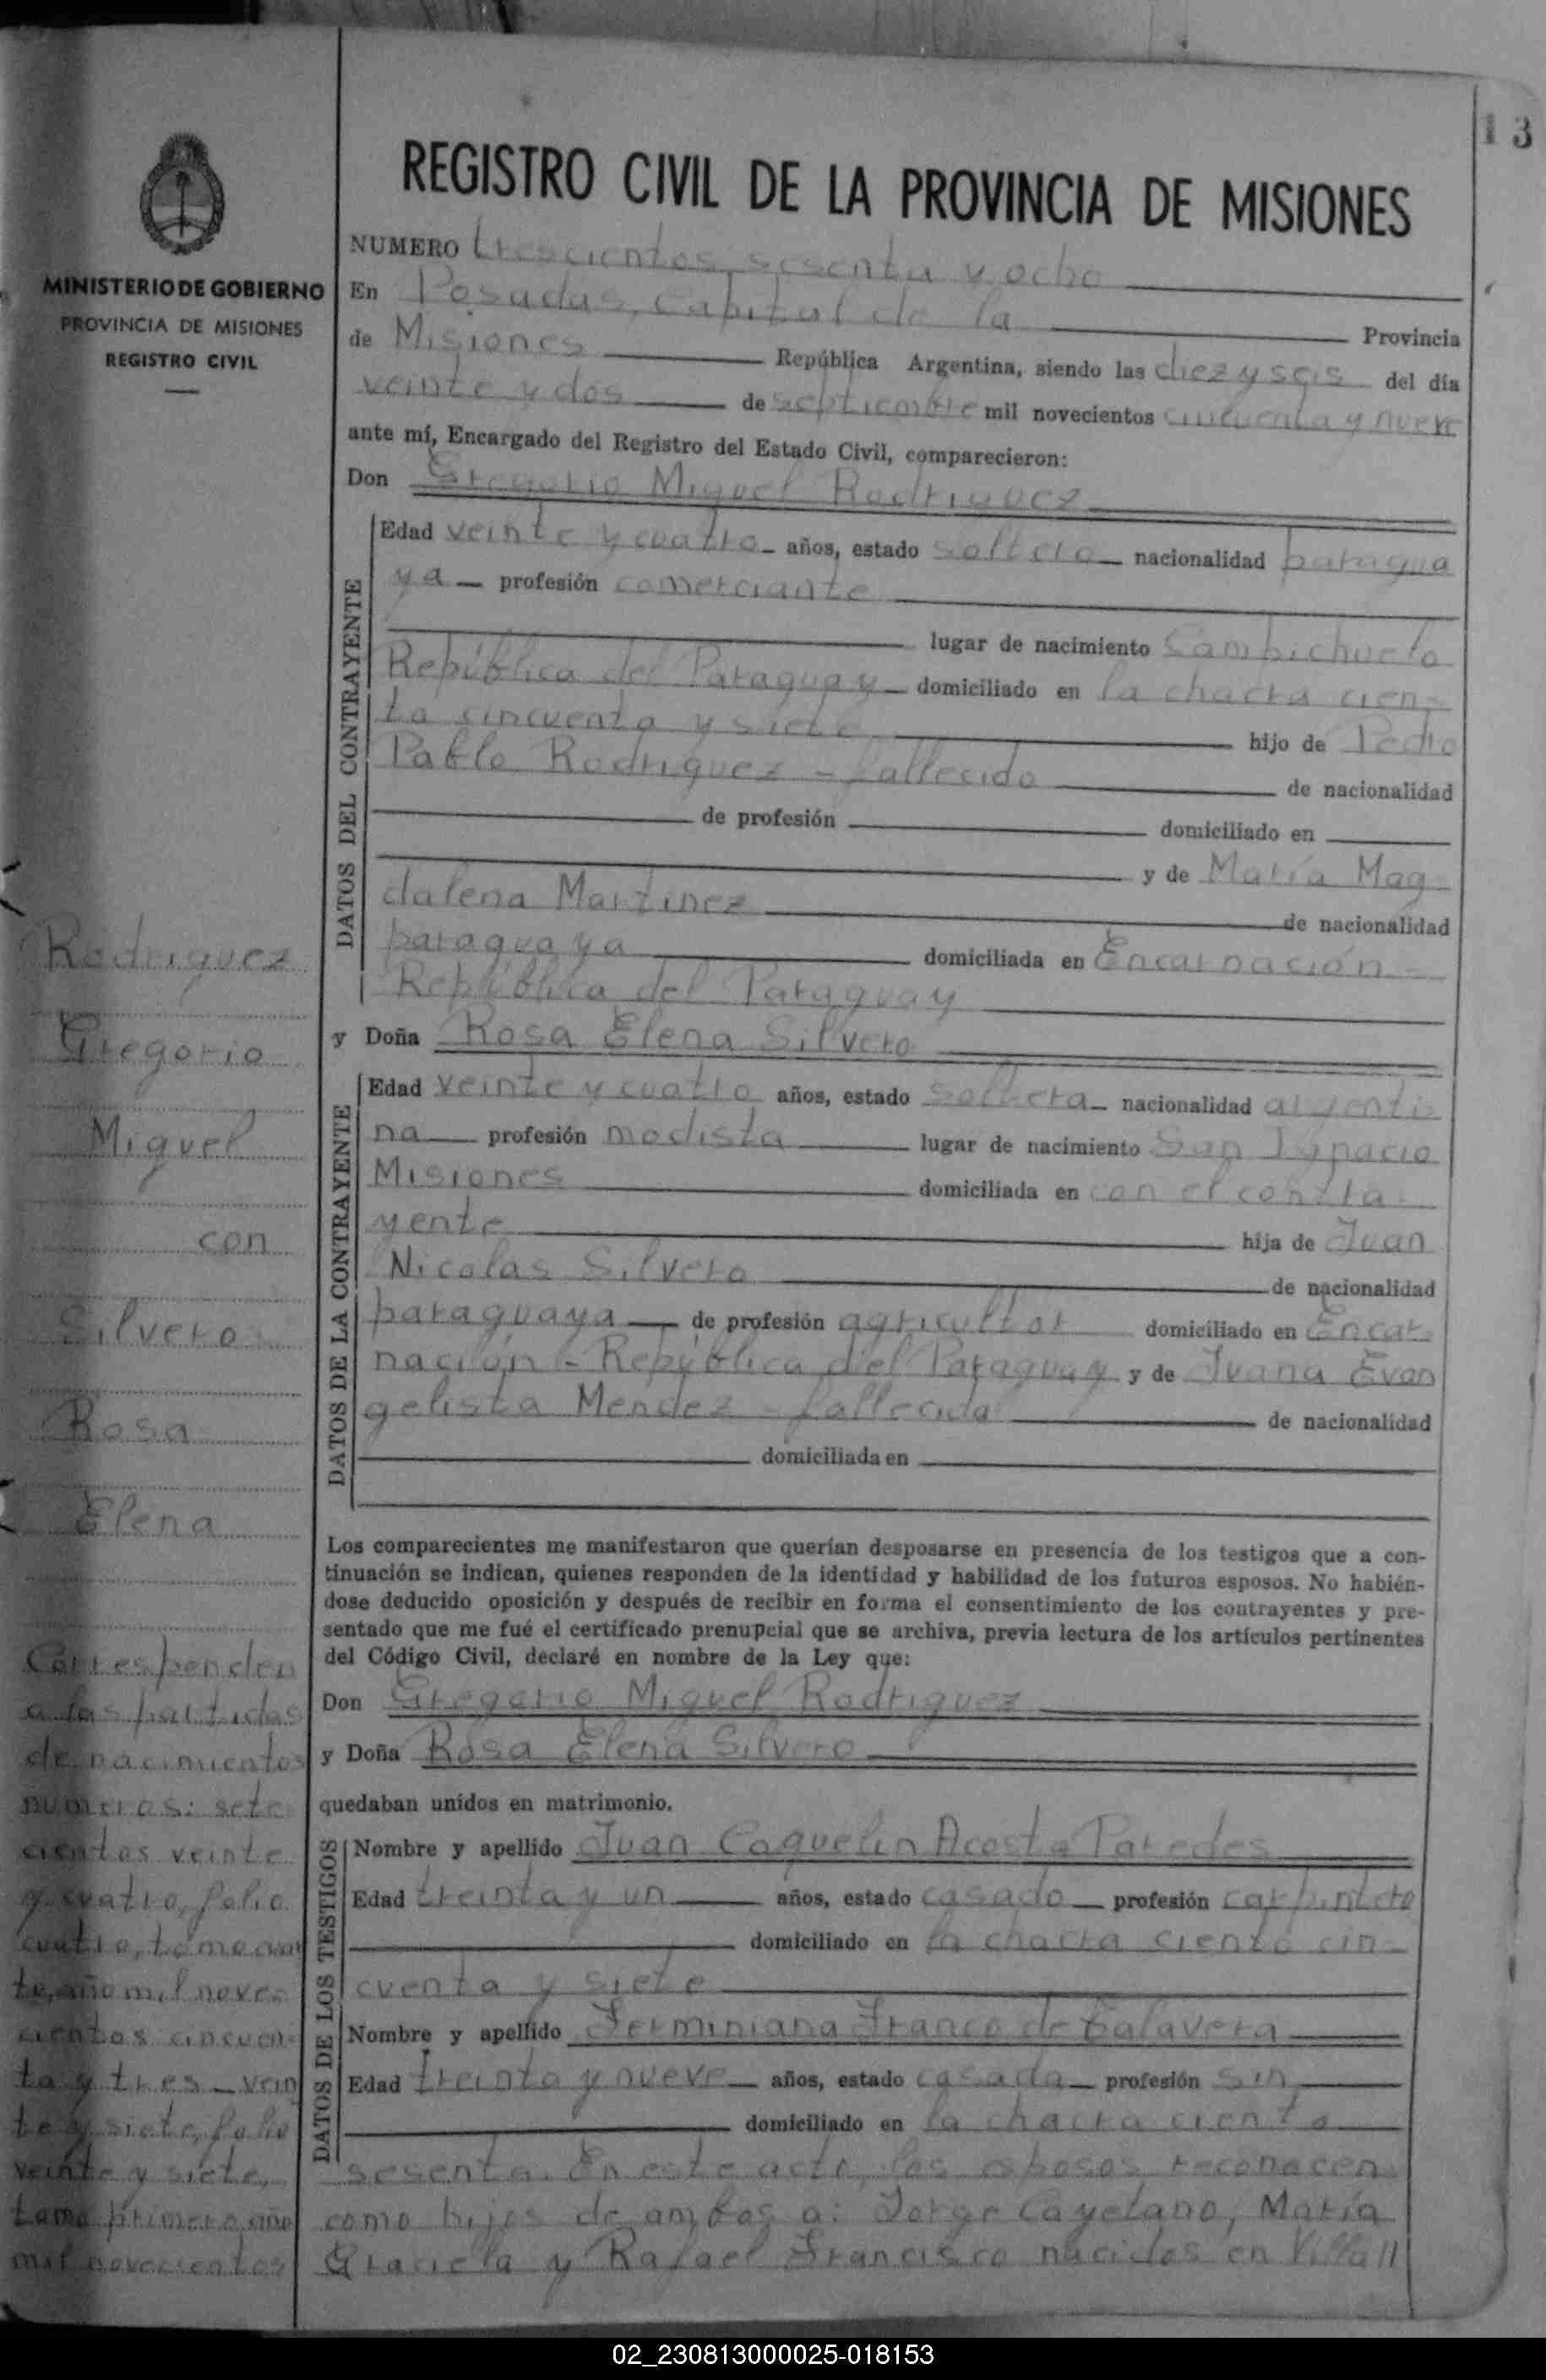 13
REGISTRO CIVIL DE LA PROVINCIA DE MISIONES
MINISTERIO DE GOBIERNO
PROVINCIA DE MISIONES
REGISTRO CIVIL
NUMERO trescientos sesenta y ocho
En Posadas, Capital de la Provincia
de Misiones República Argentina, siendo las diez y seis del día
veinte y dos de septiembre mil novecientos cincuenta y nueve
ante mí, Encargado del Registro del Estado Civil, comparecieron:
Don Gregorio Miguel Rodriguez
DATOS DEL CONTRAYENTE
Edad veinte y cuatro años, estado soltero nacionalidad paragua
ya profesión comerciante
lugar de nacimiento Cambichuelo
República del Paraguay domiciliado en la chacra cien
to cincuenta y siete hijo de Pedro
Pablo Rodriguez - fallecido de nacionalidad
de profesión domiciliado en
y de María Mag
dalena Martinez de nacionalidad
paraguaya domiciliada en Encarnación -
República del Paraguay
y Doña Rosa Elena Silvero
DATOS DE LA CONTRAYENTE
Edad veinte y cuatro años, estado soltera nacionalidad argenti
na profesión modista lugar de nacimiento San Ignacio
Misiones domiciliada en con el contra
yente hija de Juan
Nicolas Silvero de nacionalidad
paraguaya de profesión agricultor domiciliado en Encar
nación - República del Paraguay y de Juana Evan
gelista Mendez - fallecida de nacionalidad
domiciliada en
Los comparecientes me manifestaron que querían desposarse en presencia de los testigos que a con-
tinuación se indican, quienes responden de la identidad y habilidad de los futuros esposos. No habién-
dose deducido oposición y después de recibir en forma el consentimiento de los contrayentes y pre-
sentado que me fué el certificado prenupcial que se archiva, previa lectura de los artículos pertinentes
del Código Civil, declaré en nombre de la Ley que:
Don Gregorio Miguel Rodriguez
y Doña Rosa Elena Silvero
quedaban unidos en matrimonio.
DATOS DE LOS TESTIGOS
Nombre y apellido Juan Coquelin Acosta Paredes
Edad treinta y un años, estado casado profesión carpintero
domiciliado en la chacra ciento cin-
cuenta y siete
Nombre y apellido Ferminiana Franco de Talavera
Edad treinta y nueve años, estado casada profesión sin
domiciliado en la chacra ciento
sesenta. En este acto, los esposos reconocen
como hijos de ambos a: Jorge Cayetano, María
Graciela y Rafael Francisco nacidos en Villa
Rodriguez
Gregorio
Miguel
con
Silvero
Rosa
Elena
Corresponden
a las partidas
de nacimientos
numeros: sete
cientos veinte
y cuatro, folio
cuatro, tomo
te, año mil nove-
cientos cincuen-
ta y tres - vein
te y siete, folio
veinte y siete,
tomo primero, año
mil novecientos
02_230813000025-018153